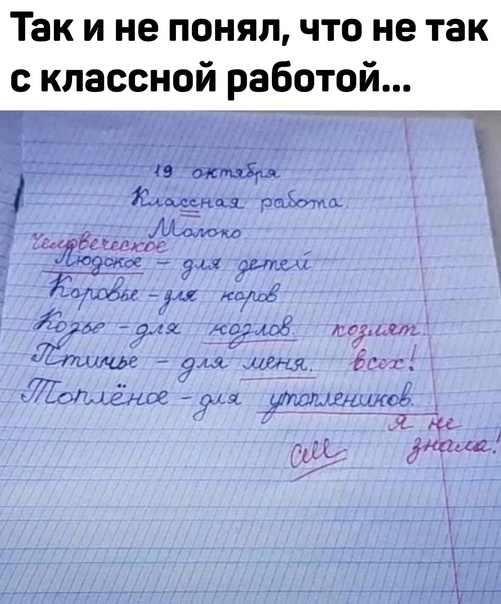 Так и не понял, что не так
с классной работой...
19 октября
Классная работа.
Молоко
Человеческое
Людское – для детей
Коровье – для коров
Козье – для козлов. козлят.
Птичье – для меня. всех!
Топлёное – для утоплеников.
я не
см знала!